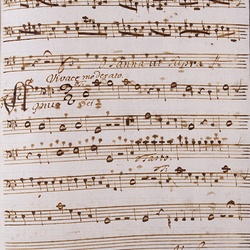 Osanna ut supra
Vivace moderato.
Agnus Dei